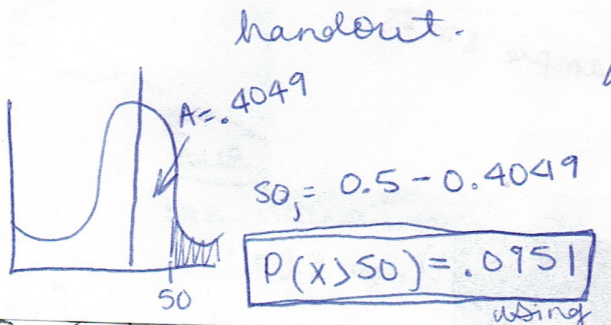 handout.
A=.4049
so, = 0.5 - 0.4049
P(x>50) = .0951
50
using